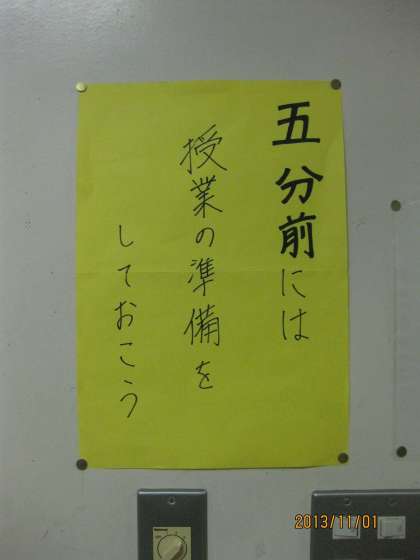 五分前には
授業の準備を
しておこう
2013/11/01